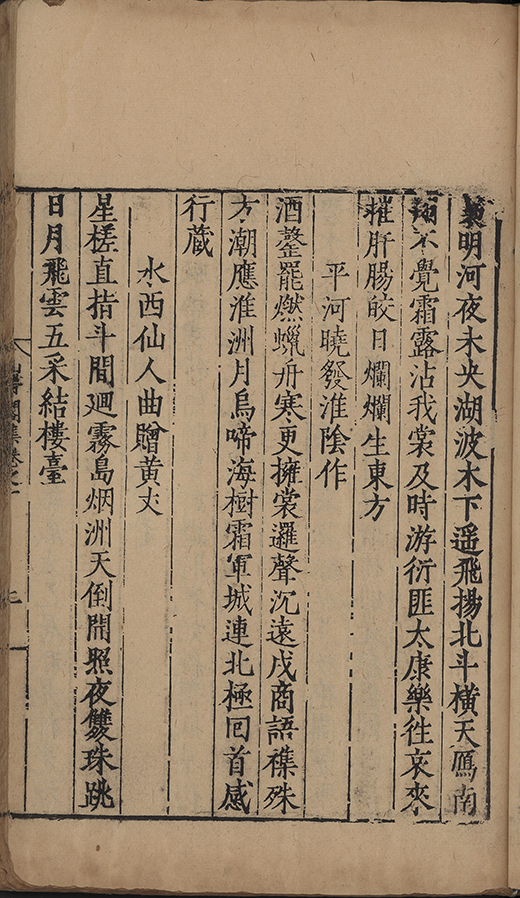 明河夜未央湖波木下遥飛揚北斗橫天鴈南
翔不覺霜露沾我裳及時游衍匪太康樂徃哀來
摧肝腸皎日爛爛生東方
平河曉發淮陰作
酒罄罷燃蠟舟寒更擁裳邏聲沉遠戍商語襍殊
方潮應淮洲月烏啼海樹霜軍城連北極回首感
行蔵
水西仙人曲贈黃丈
星槎直指斗間廻霧島烟洲天倒開照夜雙珠跳
日月飛雲五采結樓臺
集卷之
三